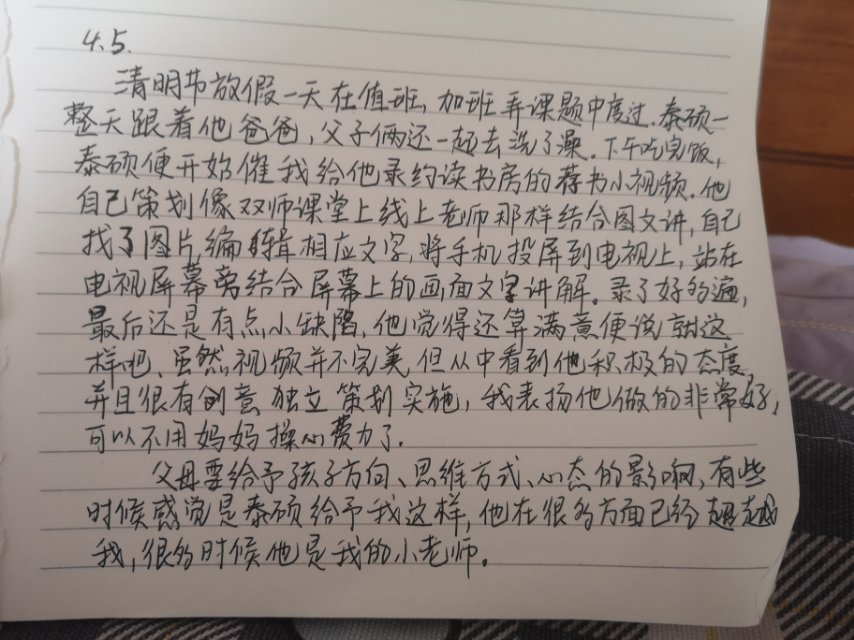 4.5.
清明节放假一天在值班，加班弄课题中度过.泰硕一
整天跟着他爸爸，父子俩还一起去洗了澡。下午吃完饭，
泰硕便开始催我给他录约读书房的荐书小视频.他
自己策划像双师课堂上线上老师那样结合图文讲，自己
找了图片，编辑相应文字，将手机投屏到电视上，站在
电视屏幕旁结合屏幕上的画面文字讲解。录了好多遍，
最后还是有点小缺陷，他觉得还算满意便说就这
样吧、虽然视频并不完美，但从中看到他积极的态度，
并且很有创意独立策划实施，我表扬他做的非常好，
可以不用妈妈操心费力了.
父母要给予孩子方向、思维方式、心态的影响，有些
时候感觉是泰硕给予我这样，他在很多方面已经超越
我，很多时候他是我的小老师。